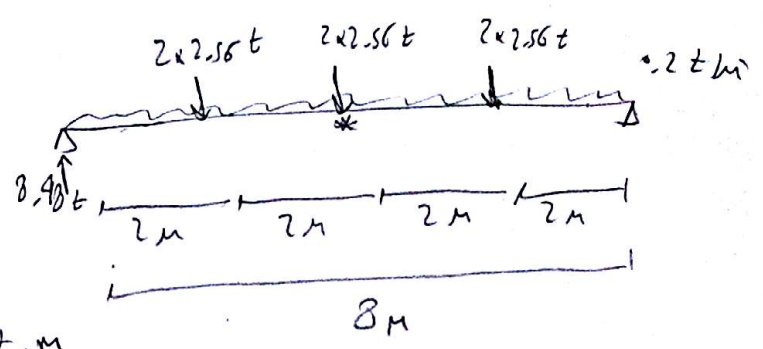 2x2.56 t 2x2.56 t 2x2.56 t
.2 t/m
8,48 t
2 M 2 M 2 M 2 M
8 M
t.m